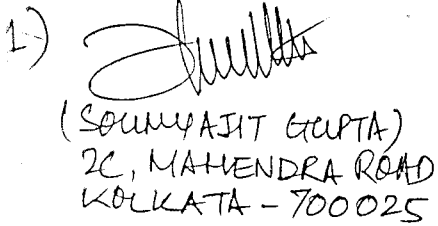 1)
(SOUMYAJIT GUPTA)
2C, MAHENDRA ROAD
KOLKATA - 700025